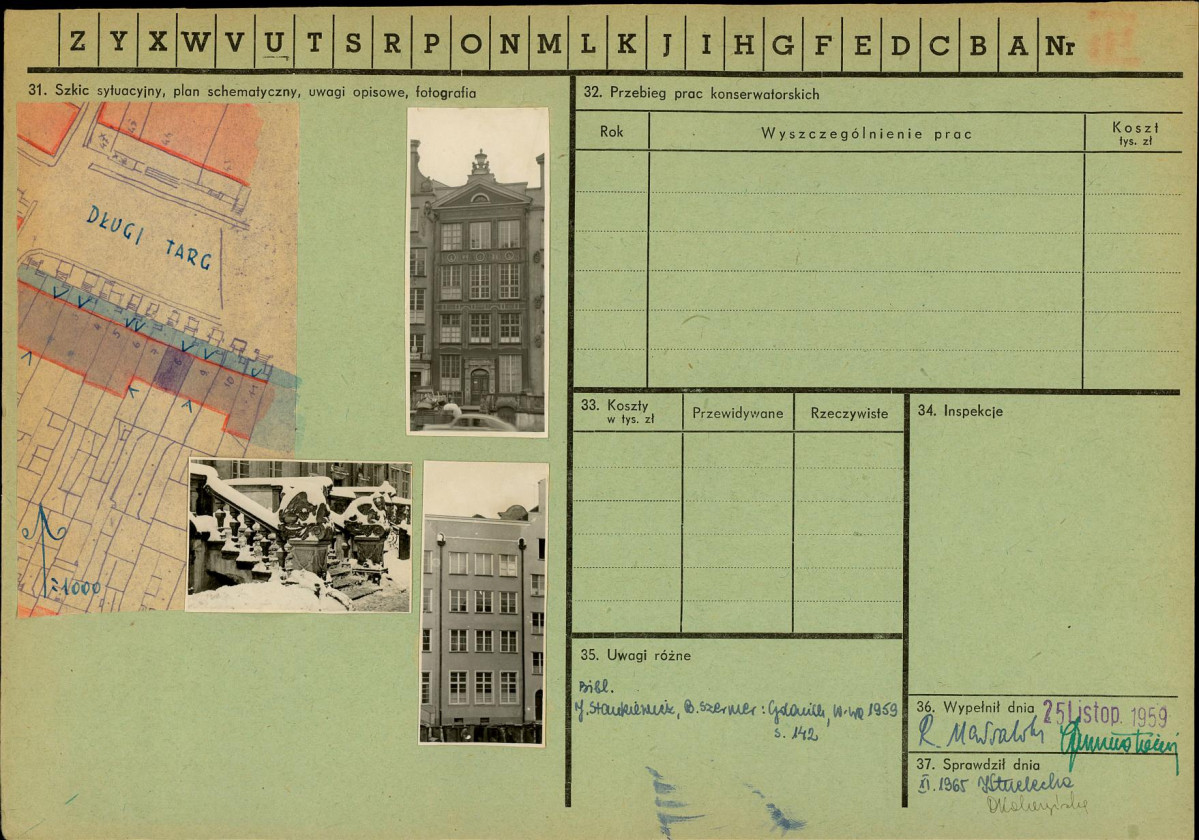 Z Y X W V U T S R P O N M L K J I H G F E D C B A Nr
31. Szkic sytuacyjny, plan schematyczny, uwagi opisowe, fotografia
DŁUGI TARG
4
5
6
7
8
9
10
11
1:1000
32. Przebieg prac konserwatorskich
Rok
Wyszczególnienie prac
Koszt
tys. zł
33. Koszty
w tys. zł
Przewidywane
Rzeczywiste
34. Inspekcje
35. Uwagi różne
Bibl.
J. Stankiewicz, B. Szermer: Gdańsk, W-wa 1959
s. 142
36. Wypełnił dnia 25 Listop. 1959
R. Massalski
37. Sprawdził dnia
XI. 1965